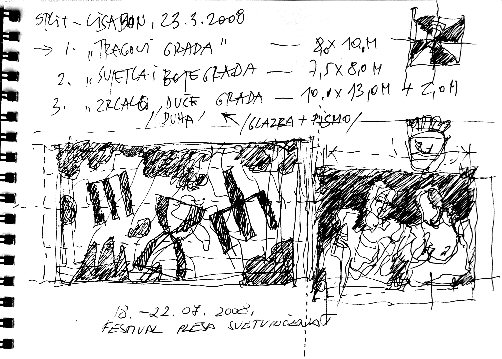 SPLIT - LISABON, 23.3.2008
→ 1. "TRAGOVI GRADA" — 8 x 10,0 M
2. "SVJETLA I BOJE GRADA — 7,5 x 8,0 M
3. "ZRCALO, DUŠE GRADA — 10,0 x 13,0 M + 2,0 M
/ DUHA / /GLAZBA + PISMO/
18. - 22.07.2008,
FESTIVAL PLESA SVETVINČENAT